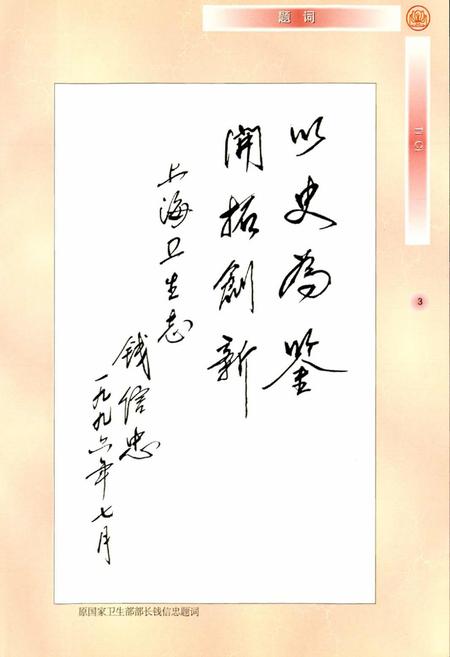 题词
TI CI
3
以史为鉴
開拓創新
上海卫生志
钱信忠
一九九六年七月
原国家卫生部部长钱信忠题词